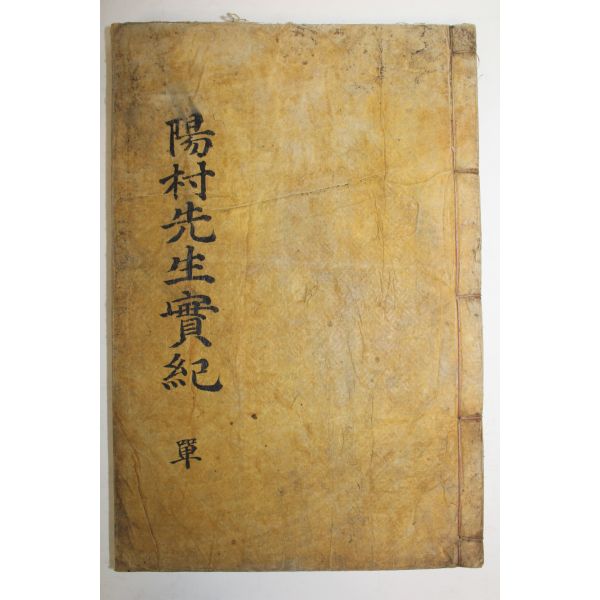 陽村先生實紀
單